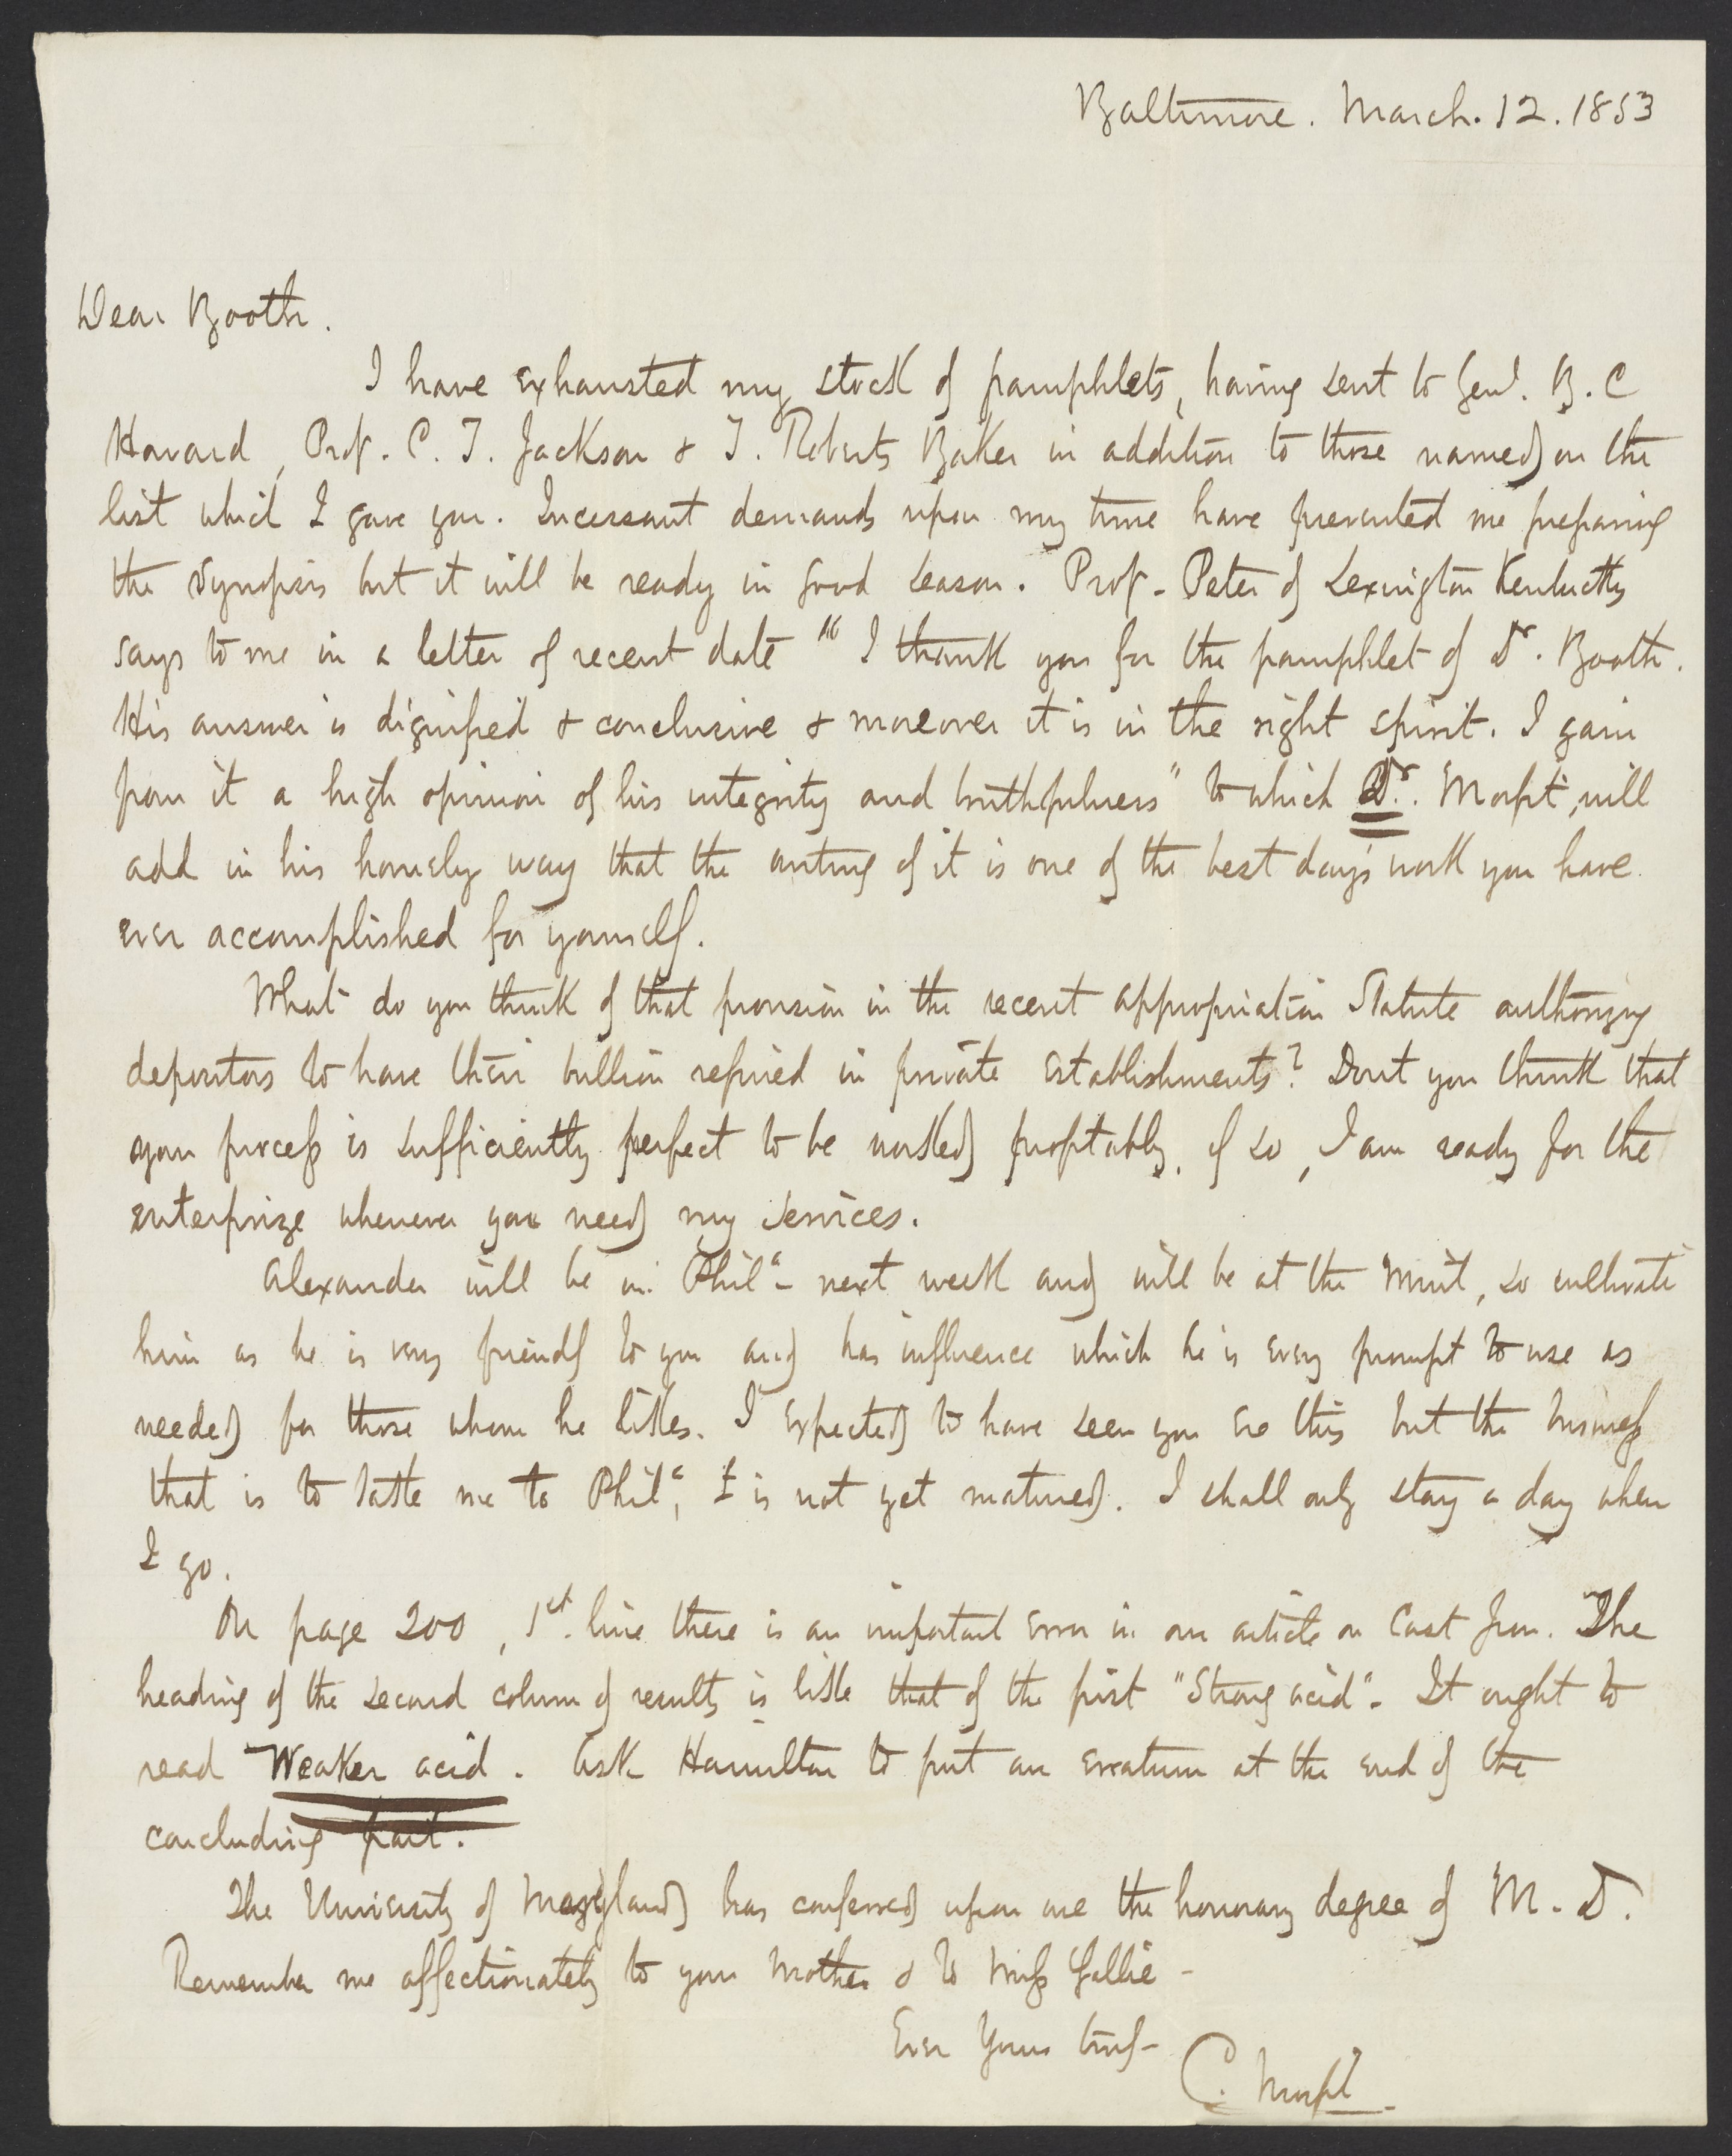 Baltimore. March. 12. 1853
Dear Booth.
I have exhausted my stock of pamphlets, having sent to Genl. B. C
Howard, Prof. C. T. Jackson & T. Roberts Baker in addition to those named on the
list which I gave you. Incessant demands upon my time have prevented me preparing
the synopsis but it will be ready in good season. Prof. Peter of Lexington Kentucky
says to me in a letter of recent date "I thank you for the pamphlet of Dr. Booth.
His answer is dignified & conclusive & moreover it is in the right spirit. I gain
from it a high opinion of his integrity and truthfulness" to which Dr. Morfit, will
add in his homely way that the writing of it is one of the best day's work you have
ever accomplished for yourself.
What do you think of that provision in the recent appropriation Statute authorizing
depositors to have their bullion refined in private establishments? Dont you think that
your process is sufficiently perfect to be worked profitably, if so, I am ready for the
enterprize whenever you need my services.
Alexander will be in Phila- next week and will be at the Mint, so cultivate
him as he is very friendly to you and has influence which he is every prompt to use as
needed for those whom he likes. I expected to have seen you ere this but the business
that is to take me to Phila, is not yet matured. I shall only stay a day when
I go.
On page 200, 1st. line there is an important error in our article on Cast Iron. The
heading of the second column of results is like that of the first "Strong acid". It ought to
read Weaker acid. Ask Hamilton to put an erratum at the end of the
concluding part.
The University of Maryland has conferred upon me the honorary degree of M. D.
Remember me affectionately to your Mother & to Miss Sallie -
Ever Yours truly-
C. Morfit